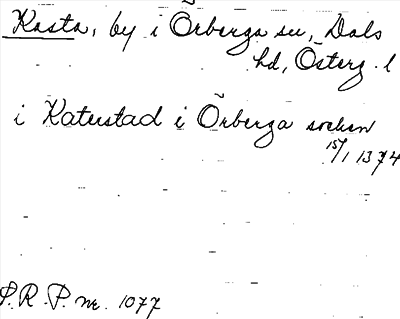 Kasta, by i Örberga sn, Dals
hd, Österg. l
i Katustad i Örberga sochn
15/1 1374
S.R.P. nr. 1077